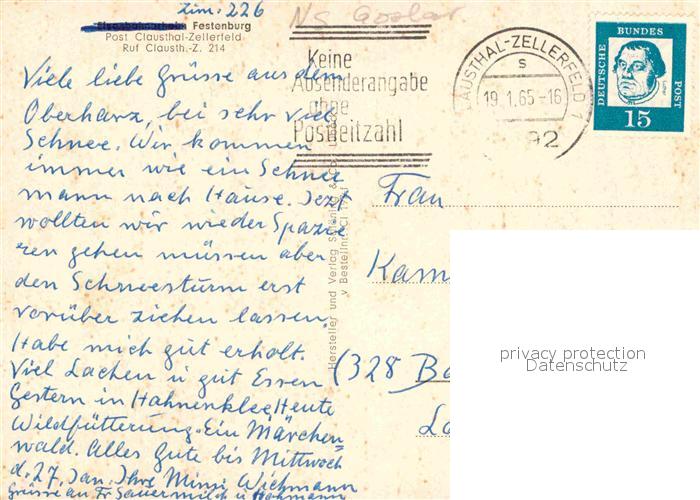 Zim: 226
Festenburg
Post Clausthal-Zellerfeld
Ruf Clausth.-Z. 214
Viele liebe Grüsse aus dem
Oberharz, bei sehr viel
Schnee. Wir kommen
immer wie ein Schnee
mann nach Hause. Jezt
wollten wir wieder Spazie
ren gehen müssen aber
den Schneesturm erst
vorüber ziehen lassen.
Habe mich gut erholt.
Viel Lachen u gut Essen
Gestern in Hahnenklee, Heute
Wildfütterung. Ein Märchen
wald. Alles Gute bis Mittwoch
d. 27. Jan. Ihre Mimi Wichmann
Grüsse an Fr Sauermilch u Hohmann
NS Goslar
Keine
Absenderangabe
ohne
Postleitzahl
CLAUSTHAL-ZELLERFELD 1
s
19.1.65-16
392
DEUTSCHE BUNDES POST
15
Hersteller und Verlag
Bestellnr. Cl
Frau
Kam
(328 Ba
La
privacy protection
Datenschutz